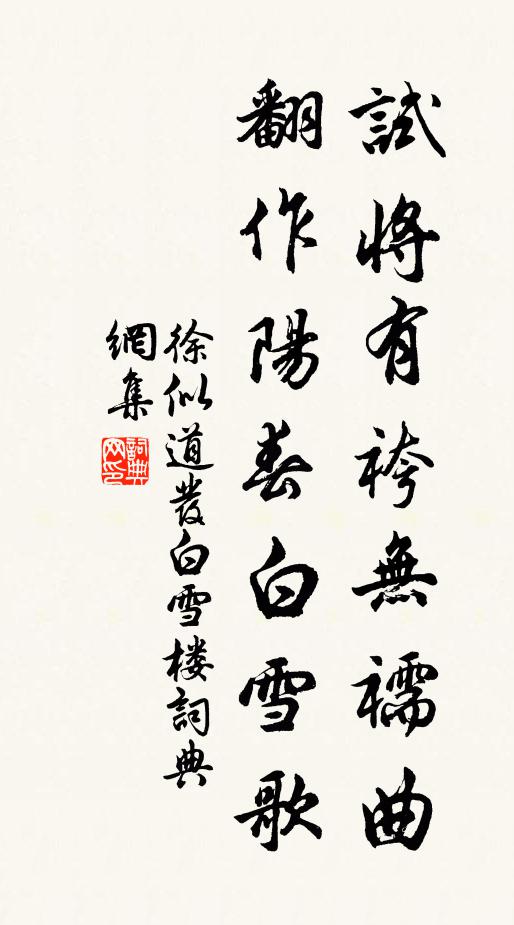 試將有袴無襦曲
翻作陽春白雪歌
徐似道叢白雪楼詞典
網集
詞典
网印